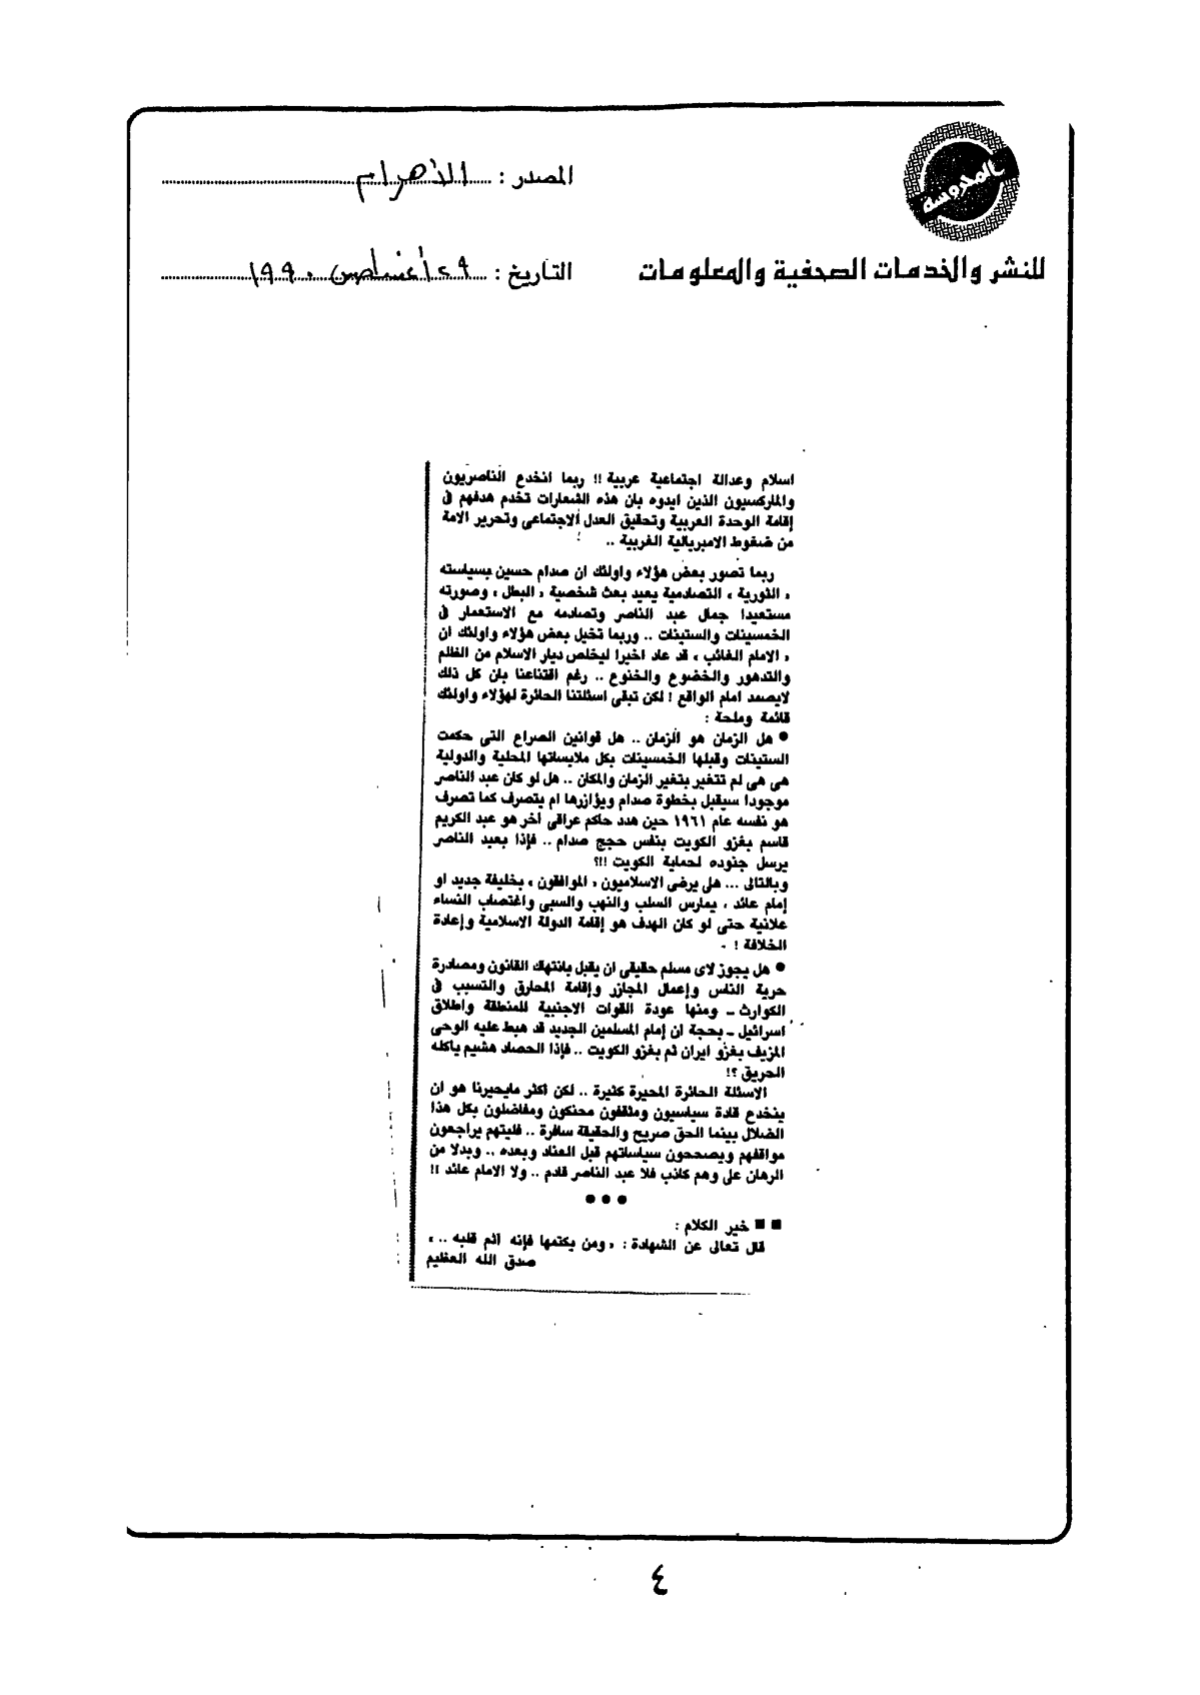 المحروسة
المصدر : الأهرام
للنشر والخدمات الصحفية والمعلومات
التاريخ : ٢٩ أغسطس ١٩٩٠
اسلام وعدالة اجتماعية عربية !! ربما انخدع الناصريون
والماركسيون الذين ايدوه بان هذه الشعارات تخدم هدفهم فى
إقامة الوحدة العربية وتحقيق العدل الاجتماعى وتحرير الامة
من ضغوط الامبريالية الغربية ..
ربما تصور بعض هؤلاء واولئك ان صدام حسين بسياسته
« الثورية » التصادمية يعيد بعث شخصية « البطل » وصورته
مستعيدا جمال عبد الناصر وتصادمه مع الاستعمار فى
الخمسينات والستينات .. وربما تخيل بعض هؤلاء واولئك ان
« الامام الغائب » قد عاد اخيرا ليخلص ديار الاسلام من الظلم
والتدهور والخضوع والخنوع .. رغم اقتناعنا بان كل ذلك
لايصمد امام الواقع ! لكن تبقى اسئلتنا الحائرة لهؤلاء واولئك
قائمة وملحة :
● هل الزمان هو الزمان .. هل قوانين الصراع التى حكمت
الستينات وقبلها الخمسينات بكل ملابساتها المحلية والدولية
هى هى لم تتغير بتغير الزمان والمكان .. هل لو كان عبد الناصر
موجودا سيقبل بخطوة صدام ويؤازرها ام يتصرف كما تصرف
هو نفسه عام ١٩٦١ حين هدد حاكم عراقى آخر هو عبد الكريم
قاسم بغزو الكويت بنفس حجج صدام .. فإذا بعبد الناصر
يرسل جنوده لحماية الكويت !!؟
وبالتالى ... هل يرضى الاسلاميون « الموافقون » بخليفة جديد او
إمام عائد ، يمارس السلب والنهب والسبى واغتصاب النساء
علانية حتى لو كان الهدف هو إقامة الدولة الاسلامية وإعادة
الخلافة !
● هل يجوز لاى مسلم حقيقى ان يقبل بانتهاك القانون ومصادرة
حرية الناس وإعمال المجازر وإقامة المحارق والتسبب فى
الكوارث ـ ومنها عودة القوات الاجنبية للمنطقة واطلاق
اسرائيل ـ بحجة ان إمام المسلمين الجديد قد هبط عليه الوحى
المزيف بغزو ايران ثم بغزو الكويت .. فإذا الحصاد هشيم ياكله
الحريق ؟!
الاسئلة الحائرة المحيرة كثيرة .. لكن اكثر مايحيرنا هو ان
ينخدع قادة سياسيون ومثقفون محنكون ومفاضلون بكل هذا
الضلال بينما الحق صريح والحقيقة سافرة .. فليتهم يراجعون
مواقفهم ويصححون سياساتهم قبل العناد وبعده .. وبدلا من
الرهان على وهم كاذب فلا عبد الناصر قادم .. ولا الامام عائد !!
● ● ●
■ ■ خير الكلام :
قال تعالى عن الشهادة : « ومن يكتمها فإنه آثم قلبه .. »
صدق الله العظيم
٤